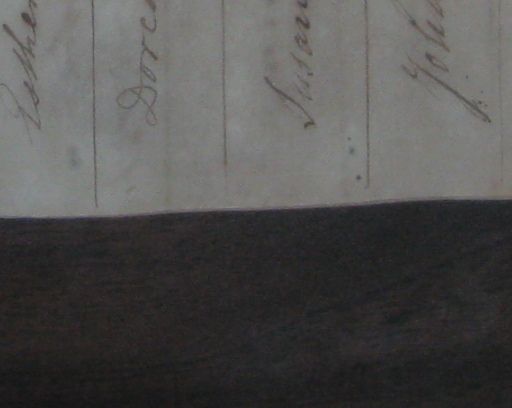 Esther
Dorca
Susan
John